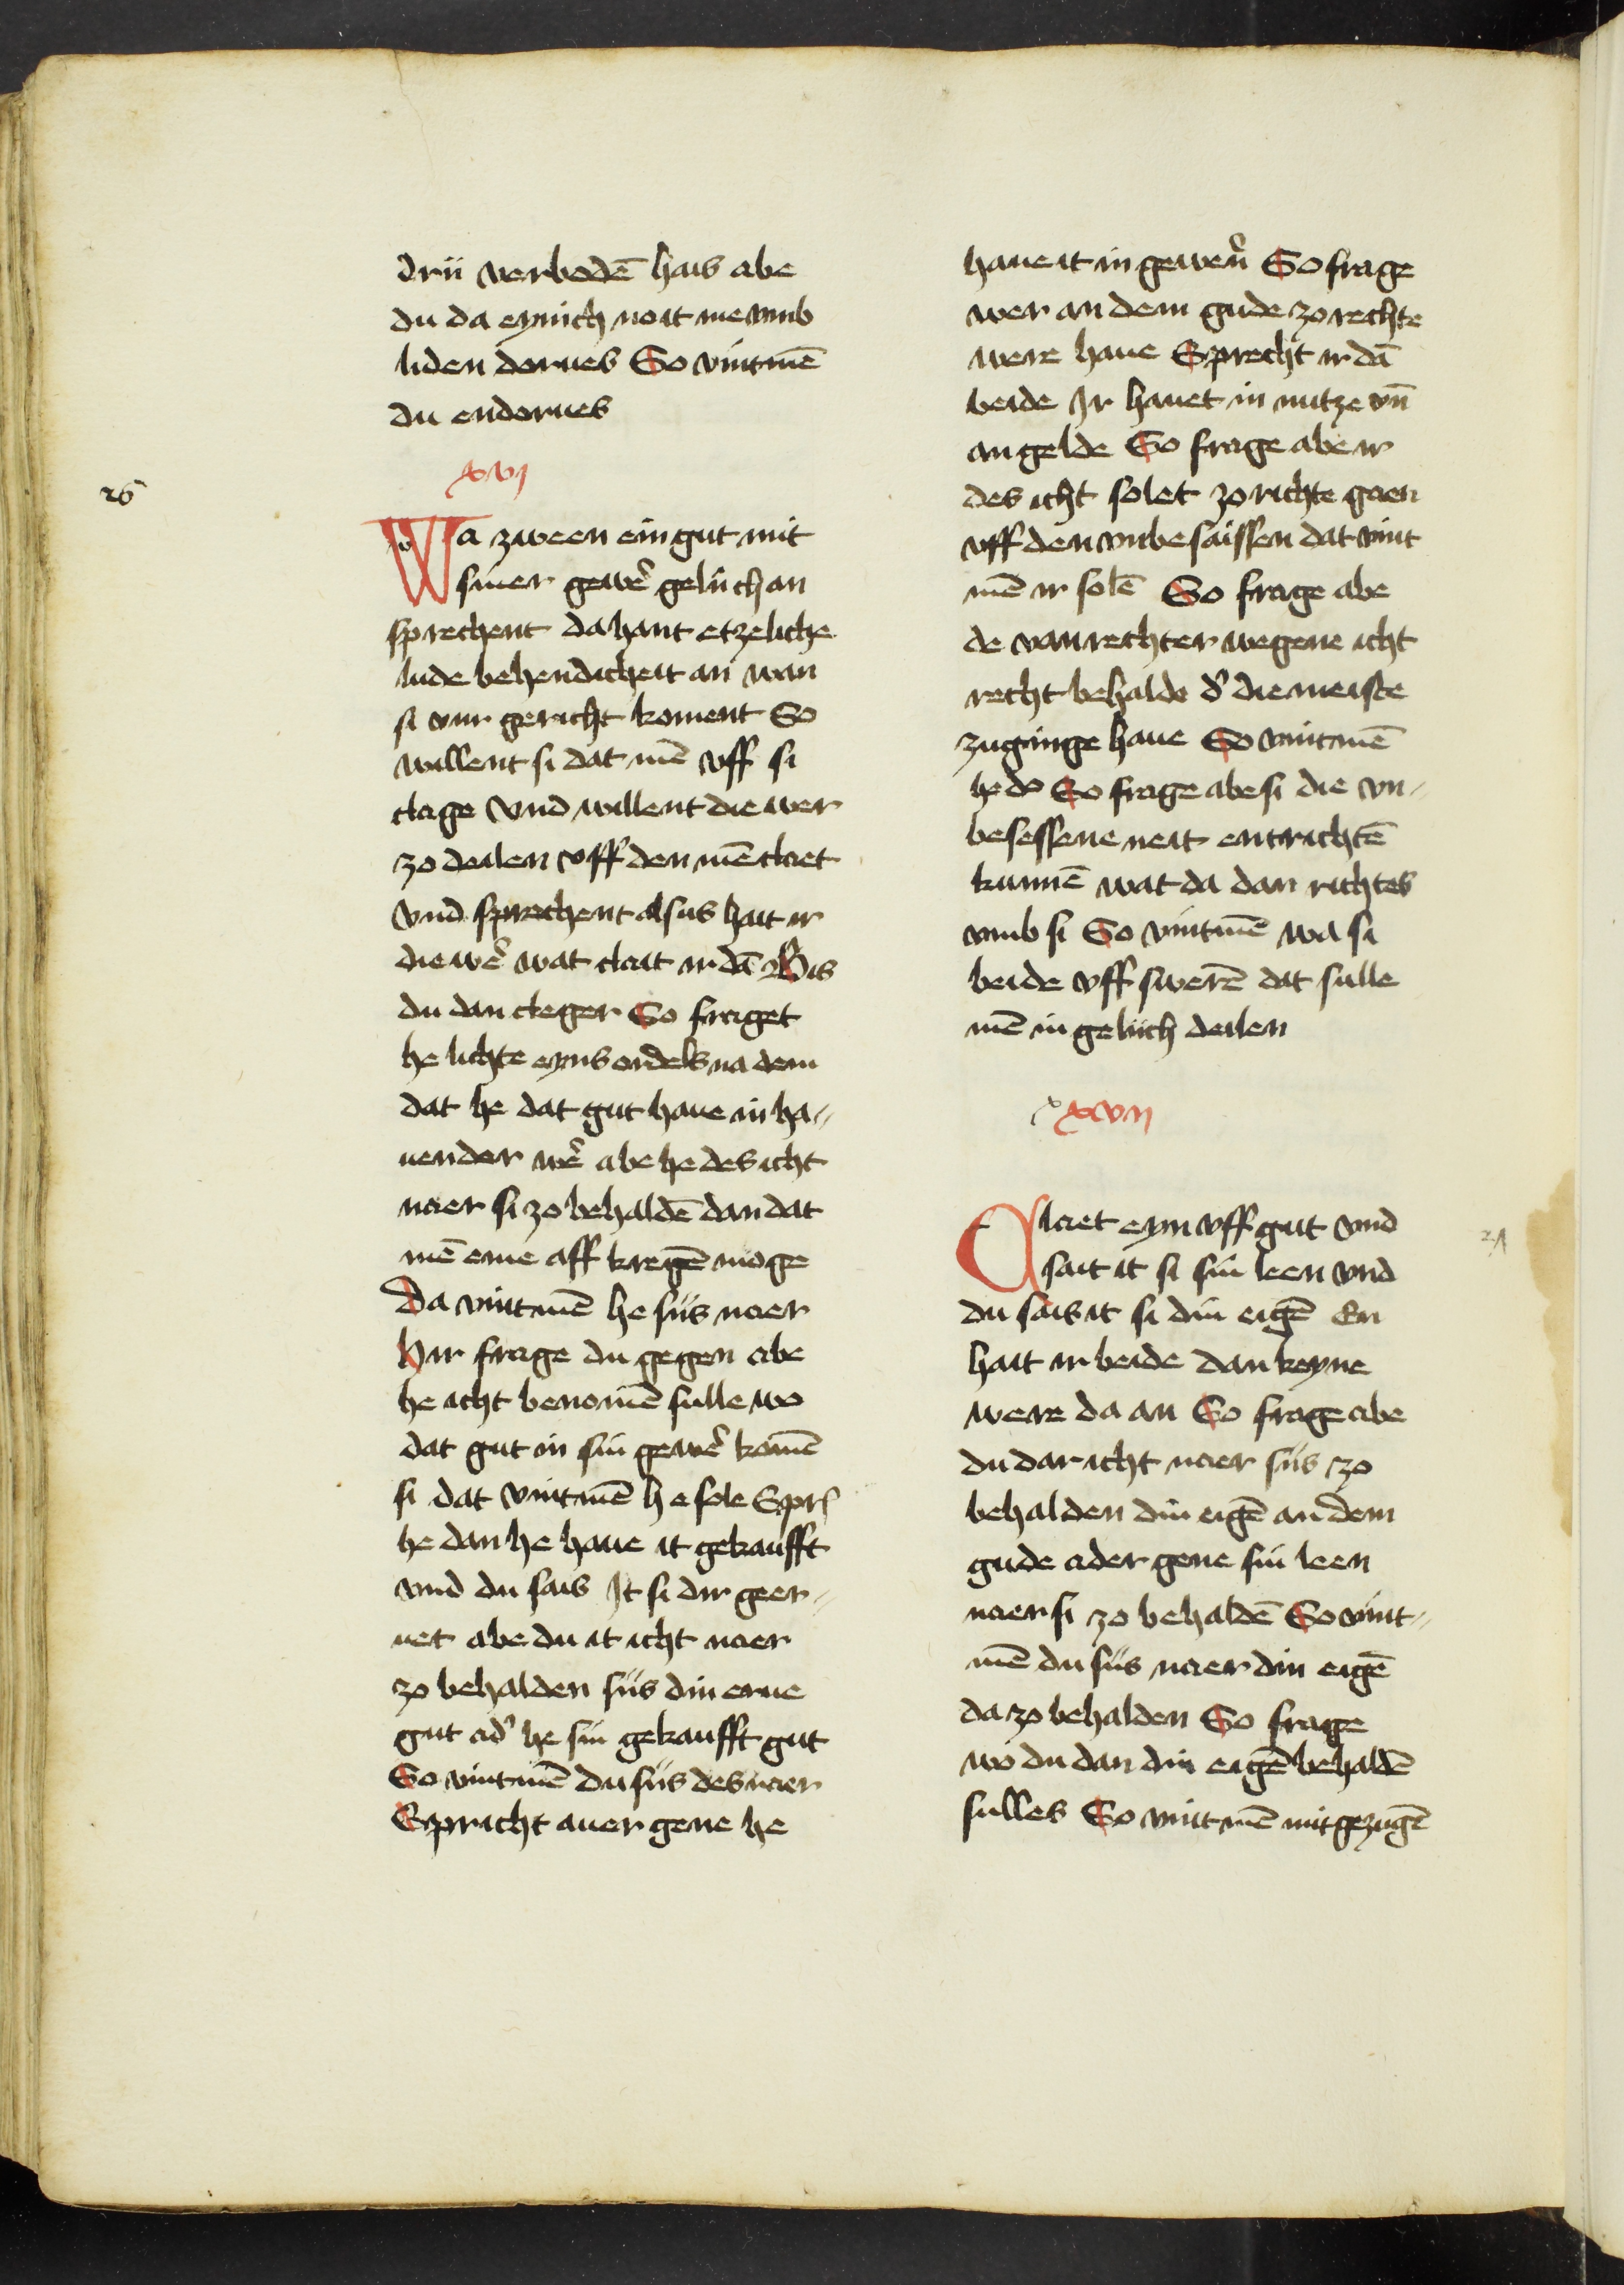 drii verbodē hais abe
du da eynich noit me vmb
liden dorues So vintmē
du endorues
xvj
26
Wa zween ein gut mit
siner gewe᷑ geliich an
sprechent da hant etzeliche
lude behendicheit an wan
si vur gericht koment So
willent si dat mē vff si
clage vnd willent die wer
zo deilen vff den mē claet
vnd sprechent alsus hait ir
die we᷑ wat clait ir dā Bis
du dan cleger So fraget
he lichte eyns ordels na dem
dat he dat gut haue in ha⸗
uender we᷑ abe he des icht
naer si zo behaldē dan dat
mē eme aff kregē moge
Da vintmē he siis naer
Hir frage du gegen abe
he icht benomē sulle wo
dat gut in sin gewe᷑ komē
si dat vintmē he sole Spr
he dan he haue it gekaufft
vnd du sais It si dir geer⸗
uet abe du it icht naer
zo behalden siis din erue
gut ad᷑ he sin gekaufft gut
So vintmē du siis des naer
Spricht auer gene he
haue it in gewer̄ So frage
wer an dem gude zo rechte
were haue Sprecht ir dā
beide Ir hauet in nutze vn̄
an gelde So frage abe ir
des icht solet zo richte goen
vff den vnbesaissen dat vint
mē ir solē So frage abe
de van rechter wegene icht
recht behalde d᷑ die meiste
zugunge haue So vintmē
he do So frage abe si die vn⸗
besessene neit entrichtē
kunnē wat da dan richtes
vmb si So vintmē wa si
beide vff swerē dat sulle
mē in geliich deilen
xxvij
Claet eyn vff gut vnd
sait it si sin leen vnd
du sais it si din eigē En
hait ir beide dan keyne
were da an So frage abe
du dar icht naer siis zo
behalden din eigē an dem
gude ader gene sin leen
naer si zo behaldē So vint⸗
mē du siis naer din eigē
da zo behalden So frage
wo du dan din eigē behaldē
sulles So vintmē mit gezugē